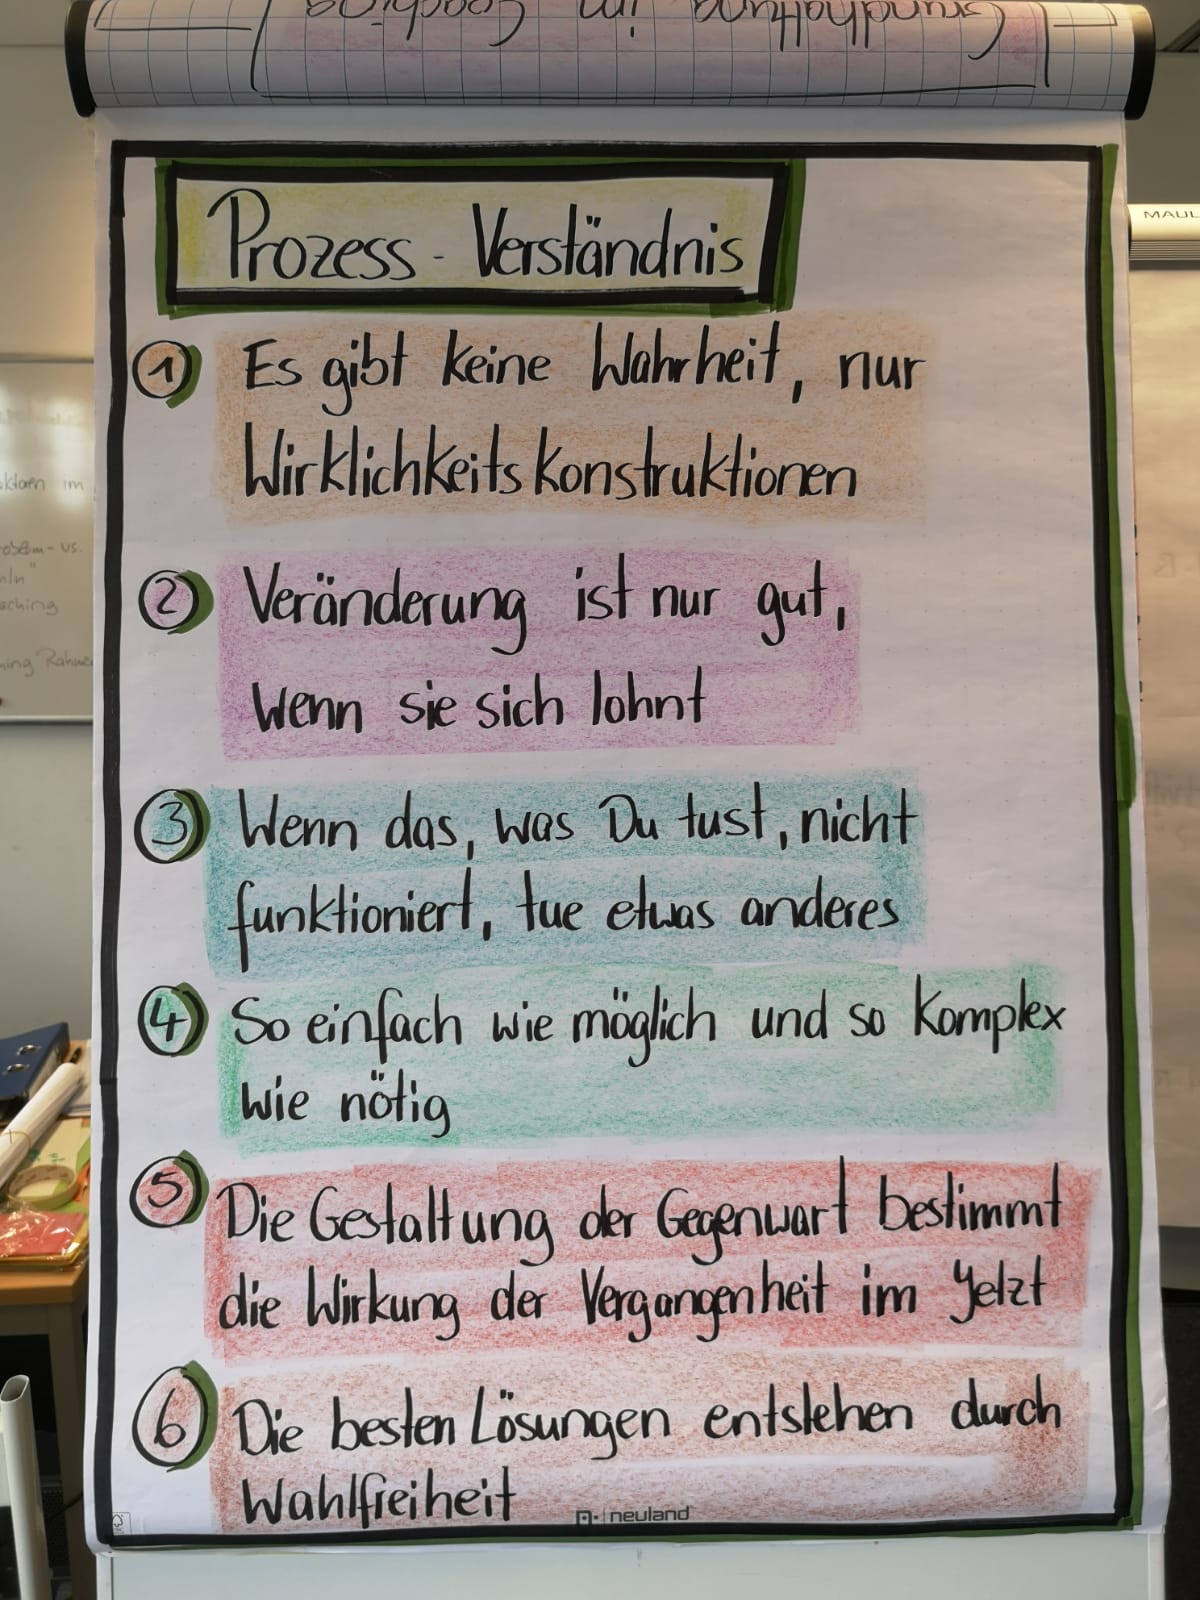 Grundhaltung im Coaching
Prozess - Verständnis
1 Es gibt keine Wahrheit, nur
Wirklichkeitskonstruktionen
2 Veränderung ist nur gut,
wenn sie sich lohnt
3 Wenn das, was Du tust, nicht
funktioniert, tue etwas anderes
4 So einfach wie möglich und so komplex
wie nötig
5 Die Gestaltung der Gegenwart bestimmt
die Wirkung der Vergangenheit im Jetzt
6 Die besten Lösungen entstehen durch
Wahlfreiheit
neuland
MAUL
im
vs.